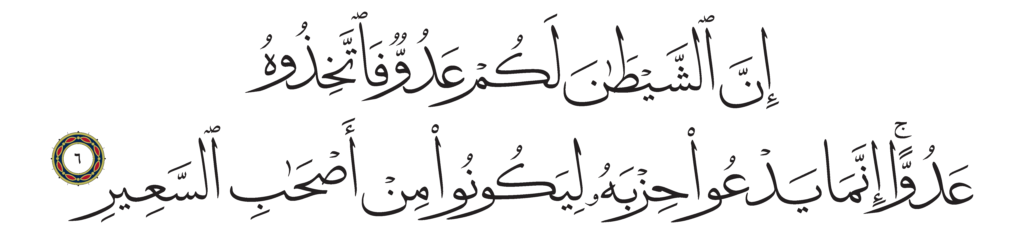 إِنَّ ٱلشَّيْطَٰنَ لَكُمْ عَدُوٌّ فَٱتَّخِذُوهُ
عَدُوًّا ۚ إِنَّمَا يَدْعُوا۟ حِزْبَهُۥ لِيَكُونُوا۟ مِنْ أَصْحَٰبِ ٱلسَّعِيرِ ٦